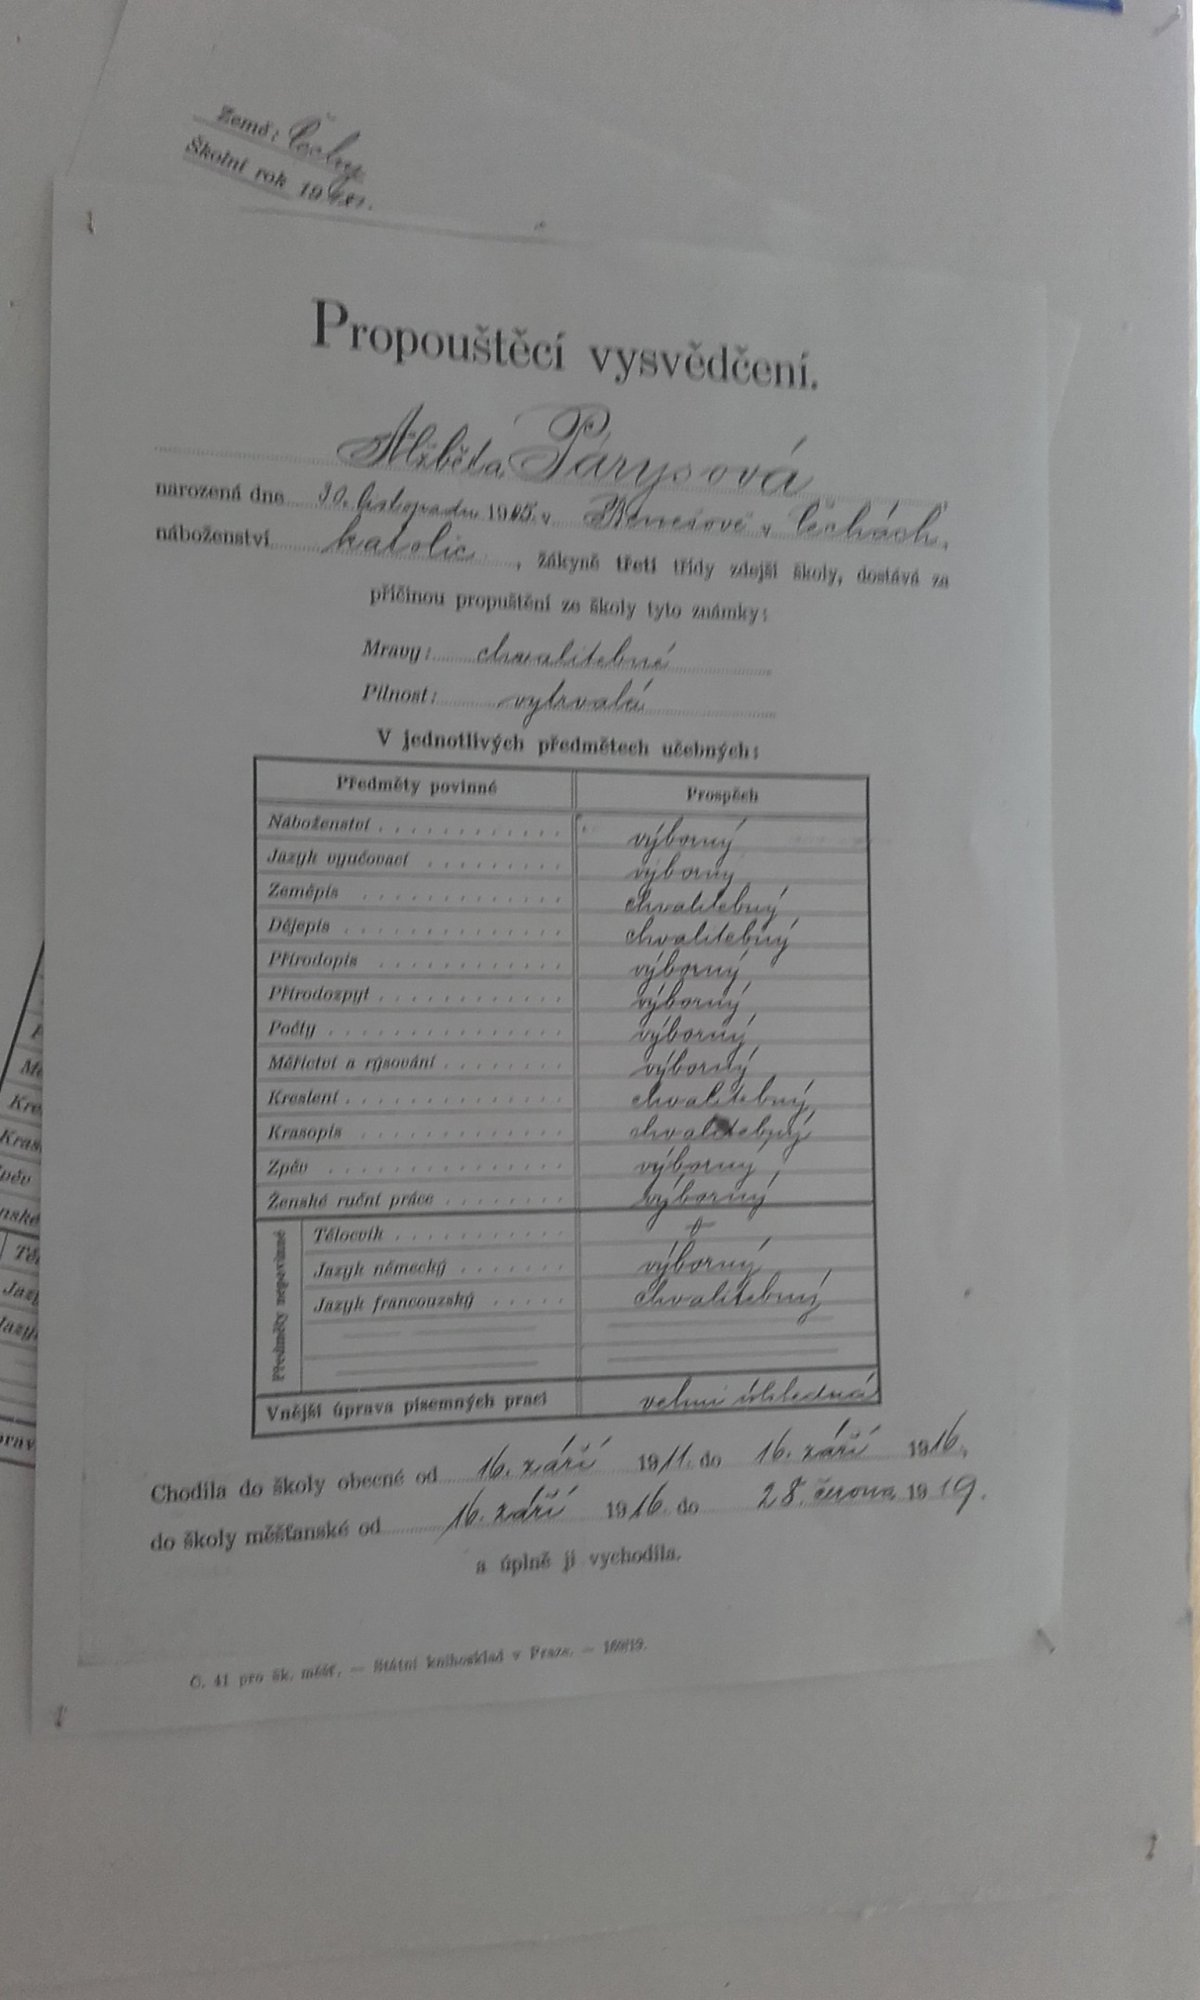 Země: Čechy
Školní rok 19
Propouštěcí vysvědčení.
Alžběta Párysová
narozená dne 30. listopadu 1905 v Benešově v Čechách,
náboženství katolic , žákyně třetí třídy zdejší školy, dostává za
příčinou propuštění ze školy tyto známky:
Mravy: chvalitebné
Pilnost: vytrvalá
V jednotlivých předmětech učebných:
Předměty povinné Prospěch
Náboženství výborný
Jazyk vyučovací výborný
Zeměpis chvalitebný
Dějepis chvalitebný
Přírodopis výborný
Přírodozpyt výborný
Počty výborný
Měřictví a rýsování výborný
Kreslení chvalitebný
Krasopis chvalitebný
Zpěv výborný
Ženské ruční práce výborný
Předměty nepovinné
Tělocvik
Jazyk německý výborný
Jazyk francouzský chvalitebný
Vnější úprava písemných prací velmi úhledná
Chodila do školy obecné od 16. září 1911. do 16. září 1916,
do školy měšťanské od 16. září 1916. do 28. června 1919.
a úplně ji vychodila.
Č. 41 pro šk. měšť. — Státní knihosklad v Praze. —